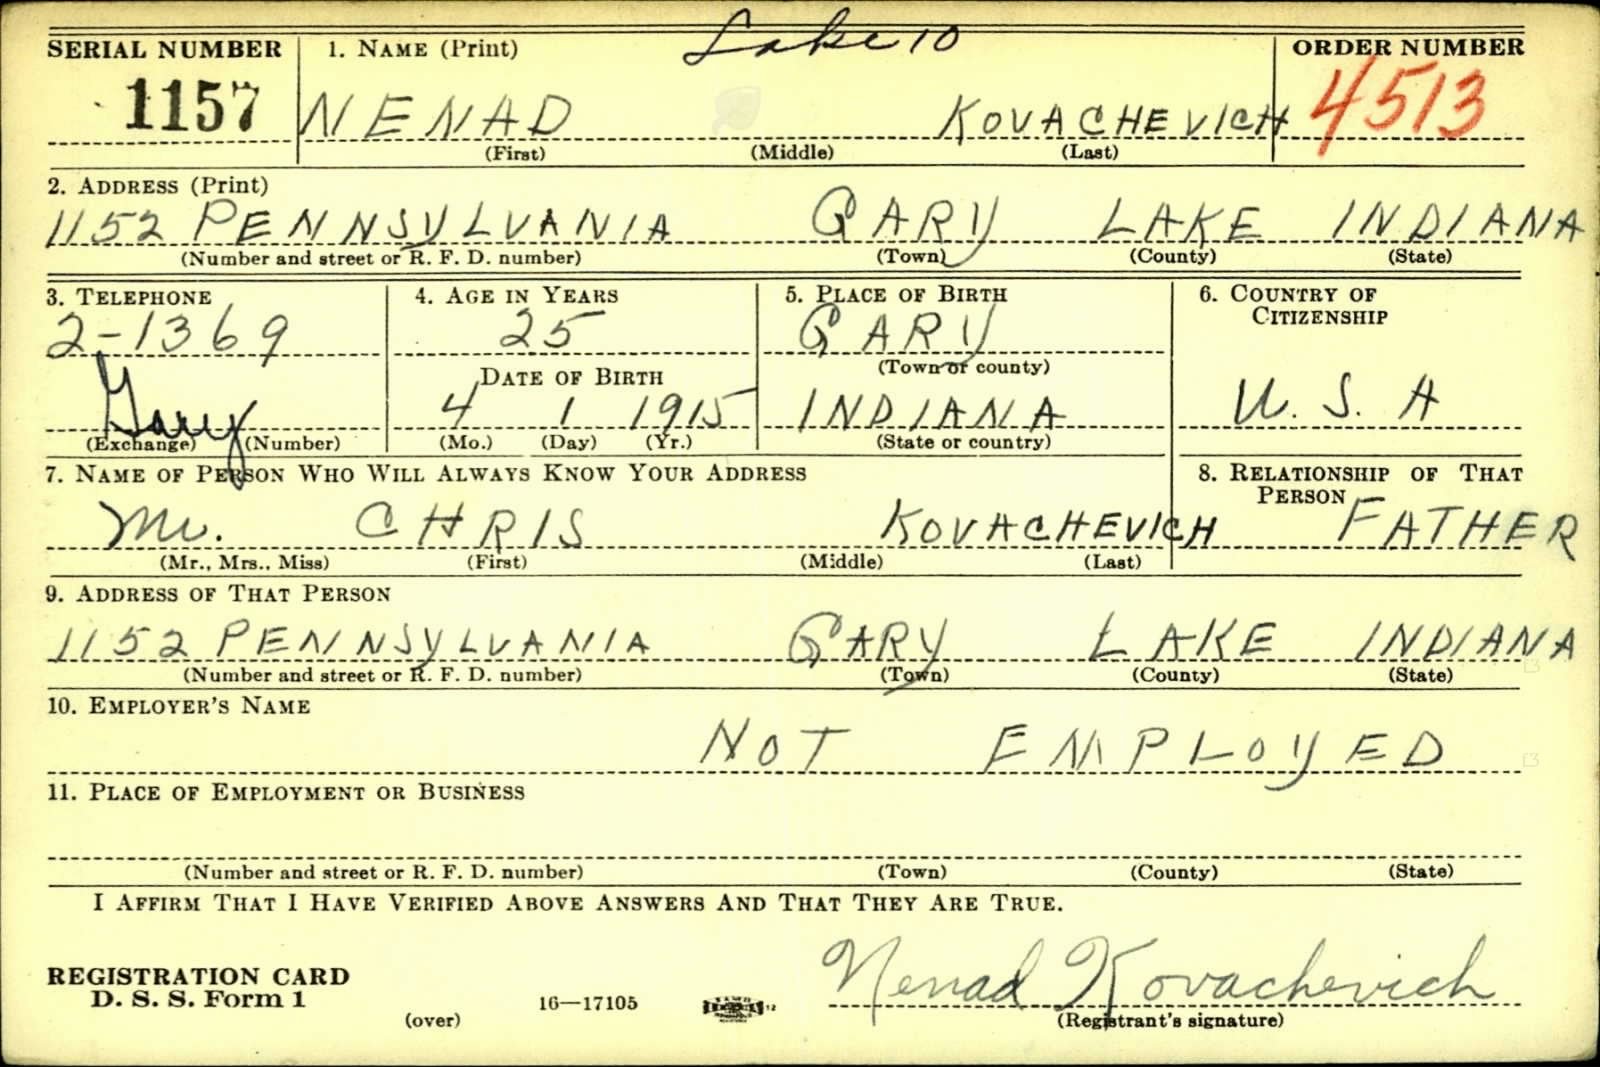 Lake 10
SERIAL NUMBER 1. NAME (Print) ORDER NUMBER
1157 NENAD KOVACHEVICH 4513
(First) (Middle) (Last)
2. ADDRESS (Print)
1152 PENNSYLVANIA GARY LAKE INDIANA
(Number and street or R. F. D. number) (Town) (County) (State)
3. TELEPHONE 4. AGE IN YEARS 5. PLACE OF BIRTH 6. COUNTRY OF
CITIZENSHIP
2-1369 25 GARY
(Town or county)
DATE OF BIRTH
Gary 4 1 1915 INDIANA U. S. A
(Exchange) (Number) (Mo.) (Day) (Yr.) (State or country)
7. NAME OF PERSON WHO WILL ALWAYS KNOW YOUR ADDRESS 8. RELATIONSHIP OF THAT
PERSON
Mr. CHRIS KOVACHEVICH FATHER
(Mr., Mrs., Miss) (First) (Middle) (Last)
9. ADDRESS OF THAT PERSON
1152 PENNSYLVANIA GARY LAKE INDIANA
(Number and street or R. F. D. number) (Town) (County) (State)
10. EMPLOYER'S NAME
NOT EMPLOYED
11. PLACE OF EMPLOYMENT OR BUSINESS
(Number and street or R. F. D. number) (Town) (County) (State)
I AFFIRM THAT I HAVE VERIFIED ABOVE ANSWERS AND THAT THEY ARE TRUE.
REGISTRATION CARD Nenad Kovachevich
D. S. S. Form 1 16—17105 12
(over) (Registrant's signature)